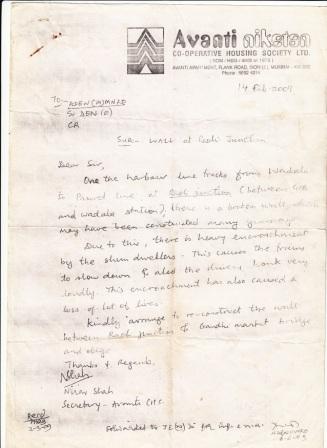 Avanti niketan
CO-OPERATIVE HOUSING SOCIETY LTD.
AVANTI APARTMENT, FLANK ROAD, SION (E), MUMBAI
Phone
14 Feb 2009
To
ADEN (M) MNRD
Sr DEN (C)
CR
Sub - WALL at Raoli Junction
Dear Sir,
On the harbour line tracks from Wadala
to line at Raoli Junction (between GTB
and wadala station), there is a broken wall, which
may have been constructed many years ago.
Due to this, there is heavy encroachment
by the slum dwellers. This causes the trains
to slow down & also the drivers honk very
loudly. This encroachment has also caused a
loss of lot of lives.
Kindly arrange to re-construct the wall
between Raoli junction & Gandhi market bridge
and oblige.
Thanks & Regards.
Nirav Shah
Secretary - Avanti CHS.
Forwarded to